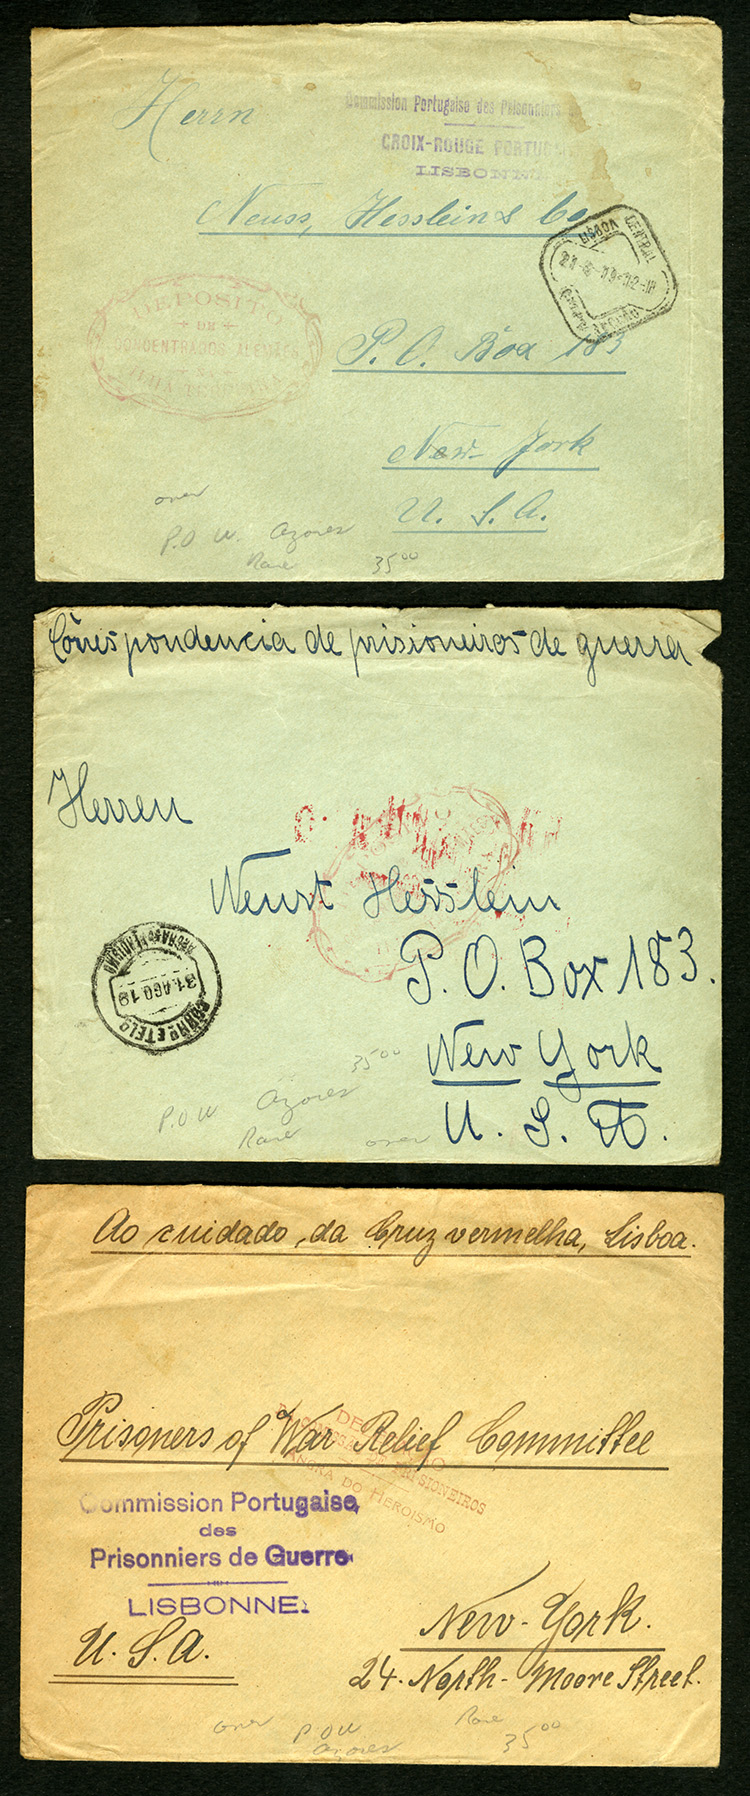 Herrn
Commission Portugaise des Prisonniers
CROIX-ROUGE PORTUG
LISBONNE
Neuss, Hesslein & Co
LISBOA CENTRAL
DEPOSITO
DE
CONCENTRADOS ALEMÃES
NA
ILHA TERCEIRA
P. O. Box 183
New York
U. S. A.
over
P.O W. Azores
Rare 35⁰⁰
Correspondencia de prisioneiros de guerra
Herren
Neuss Hesslein
P. O. Box 183.
ANGRA DO HEROISMO
31. AGO 19
CORRº E TELº
New York
U. S. A.
35⁰⁰
P.O W Azores
Rare over
Ao cuidado da Cruz vermelha, Lisboa.
Prisoners of War Relief Committee
PRISIONEIROS
ANGRA DO HEROISMO
Commission Portugaise
des
Prisonniers de Guerre
LISBONNE
New-York.
U. S. A.
24. North-Moore Street.
over P O W Rare 35⁰⁰
Azores